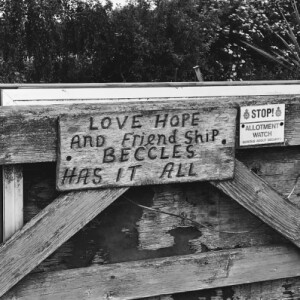 LOVE HOPE
And Friend Ship
BECCLES
HAS IT ALL
STOP!
ALLOTMENT
WATCH